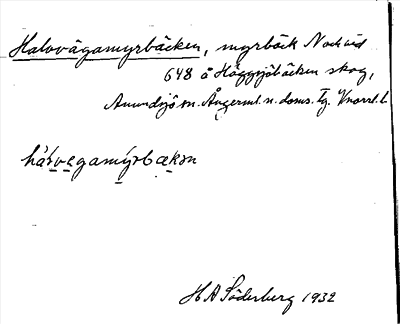 Halovägamyrbäcken, myrbäck Nod vid
648 å Häggsjöbäcken skog,
Anundsjö sn. Ångerml. n. doms. Tg. Vnorrl. l.
hárvegamýrbækən
H A Söderberg 1932